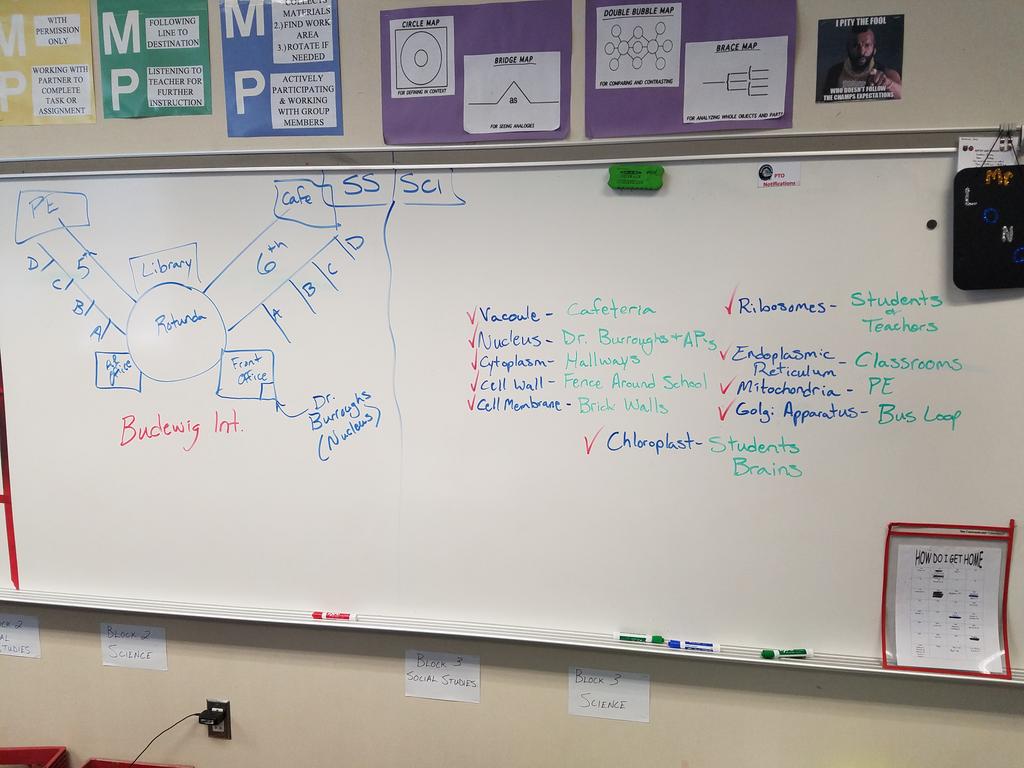 M
WITH
PERMISSION
ONLY
P
WORKING WITH
PARTNER TO
COMPLETE
TASK OR
ASSIGNMENT
M
FOLLOWING
LINE TO
DESTINATION
P
LISTENING TO
TEACHER FOR
FURTHER
INSTRUCTION
M
COLLECTS
MATERIALS
2.)FIND WORK
AREA
3.)ROTATE IF
NEEDED
P
ACTIVELY
PARTICIPATING
& WORKING
WITH GROUP
MEMBERS
CIRCLE MAP
FOR DEFINING IN CONTEXT
BRIDGE MAP
as
FOR SEEING ANALOGIES
DOUBLE BUBBLE MAP
FOR COMPARING AND CONTRASTING
BRACE MAP
FOR ANALYZING WHOLE OBJECTS AND PARTS
I PITY THE FOOL
WHO DOESN'T FOLLOW
THE CHAMPS EXPECTATIONS
PTO
Notifications
PE
Cafe
SS
SCI
5th
6th
D
C
B
A
D
C
B
A
Library
Rotunda
Front
Office
office
Dr.
Burroughs
(Nucleus)
Budewig Int.
Vacoule - Cafeteria
Nucleus - Dr. Burroughs + AP's
Cytoplasm - Hallways
Cell Wall - Fence Around School
Cell Membrane - Brick Walls
Ribosomes - Students
&
Teachers
Endoplasmic
Reticulum - Classrooms
Mitochondria - PE
Golgi Apparatus - Bus Loop
Chloroplast - Students
Brains
HOW DO I GET HOME
BLOCK 2
SCIENCE
BLOCK 3
SOCIAL STUDIES
BLOCK 3
SCIENCE